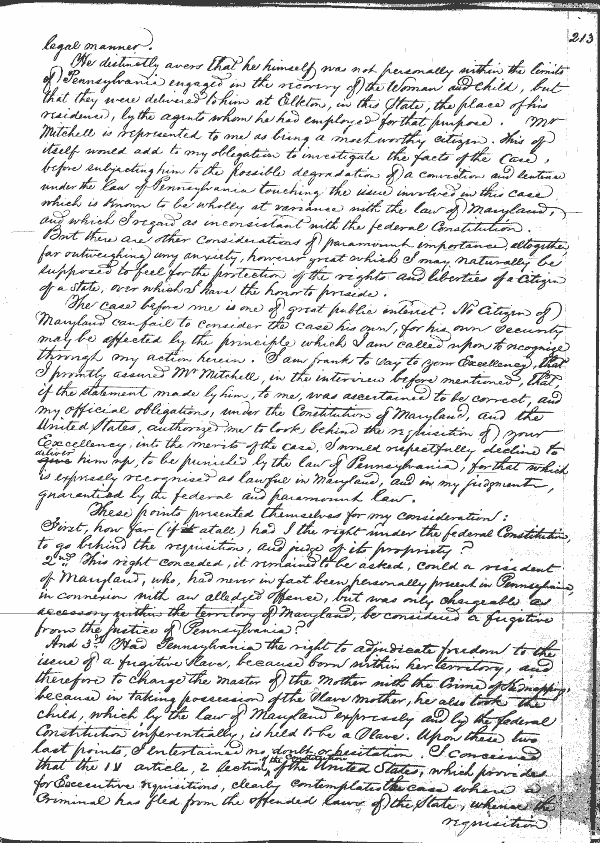 213
legal manner.
He distinctly avers that he himself was not personally within the limits
of Pennsylvania engaged in the recovery of the Woman and Child, but
that they were delivered to him at Elkton, in this State, the place of his
residence, by the agents whom he had employed for that purpose. Mr
Mitchell is represented to me as being a most worthy citizen. This of
itself would add to my obligation to investigate the facts of the case,
before subjecting him to the possible degradation of a conviction and sentence
under the law of Pennsylvania touching the issue involved in this case
which is known to be wholly at variance with the law of Maryland,
and which I regard as inconsistent with the federal Constitution.
But there are other considerations of paramount importance, altogether
far outweighing any anxiety, however great which I may naturally be
supposed to feel for the protection of the rights and liberties of a Citizen
of a State, over which I have the honor to preside.
The case before me is one of great public interest. No Citizen of
Maryland can fail to consider the case his own, for his own security
may be affected by the principle which I am called upon to recognise
through my action herein. I am frank to say to your Excellency, that
I promtly assured Mr Mitchell, in the interview before mentioned, that
if the statement made by him, to me, was ascertained to be correct, and
my official obligations, under the Constitution of Maryland, and the
United States, authorized me to look behind the requisition of your
Excellency, into the merits of the case, I would respectfully decline to
deliver
give him up, to be punished by the law of Pennsylvania, for that which
is expressly recognised as lawful in Maryland, and in my judgment,
guarantied by the federal and paramount law.
These points presented themselves for my consideration:
First, how far (if at all) had I the right under the federal Constitution,
to go behind the requisition, and judge of its propriety?
2nd This right conceded, it remained to be asked, could a resident
of Maryland, who, had never in fact been personally present in Pennsylvania,
in connexion with an alledged offence, but was only chargeable as
accessory within the territory of Maryland, be considered a fugitive
from the Justice of Pennsylvania?
And 3d Had Pennsylvania the right to adjudicate freedom to the
issue of a fugitive Slave, because born within her territory, and
therefore to charge the master of the Mother with the Crime of Kidnapping,
because in taking possession of the Slave mother, he also took the
child, which by the law of Maryland expressly and by the federal
Constitution inferentially, is held to be a Slave. Upon these two
last points, I entertained no doubt or hesitation. I conceived
of the Constitution
that the IV article, 2 section, of the United States, which provides
for Executive requisitions, clearly contemplates the case where a
Criminal has fled from the offended laws of the State, whence the
requisition